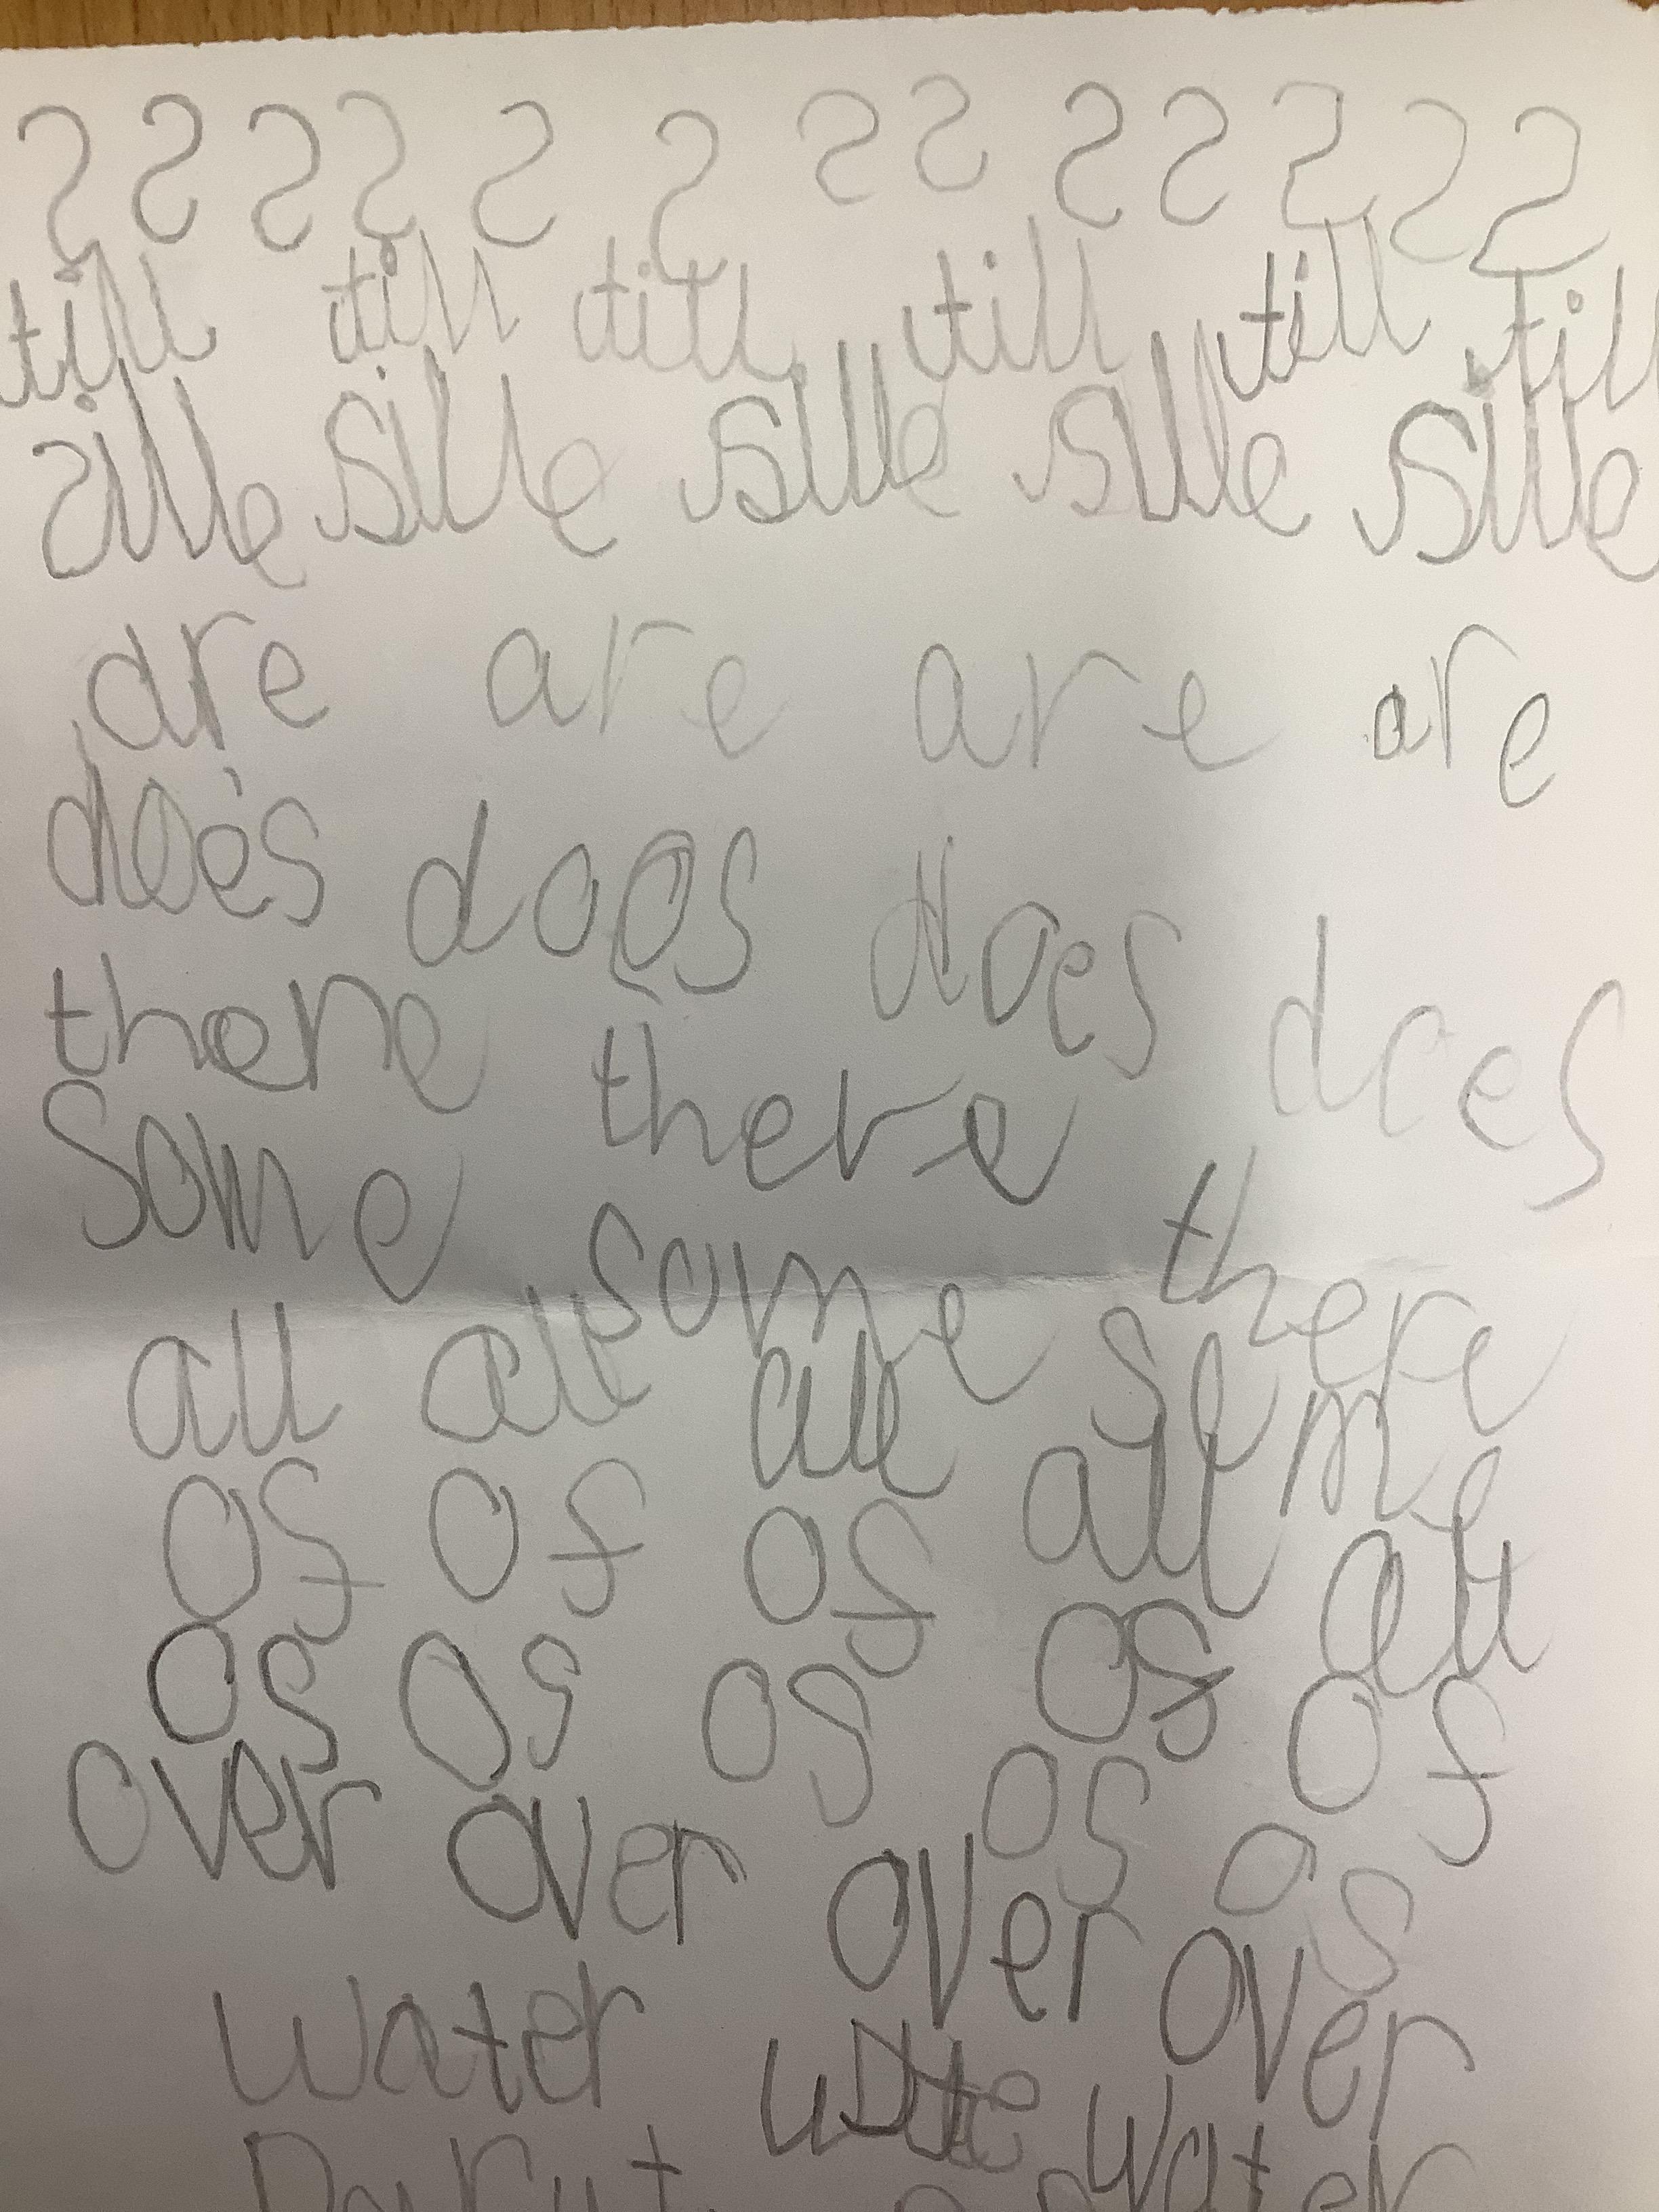 S S S S S S S S S S S S S
till till till till till till
sille sille sille sille sille
are are are are
does does does does
there there there
some some some
all all all all all
of of of of of
os os os os os
over over over over
water water